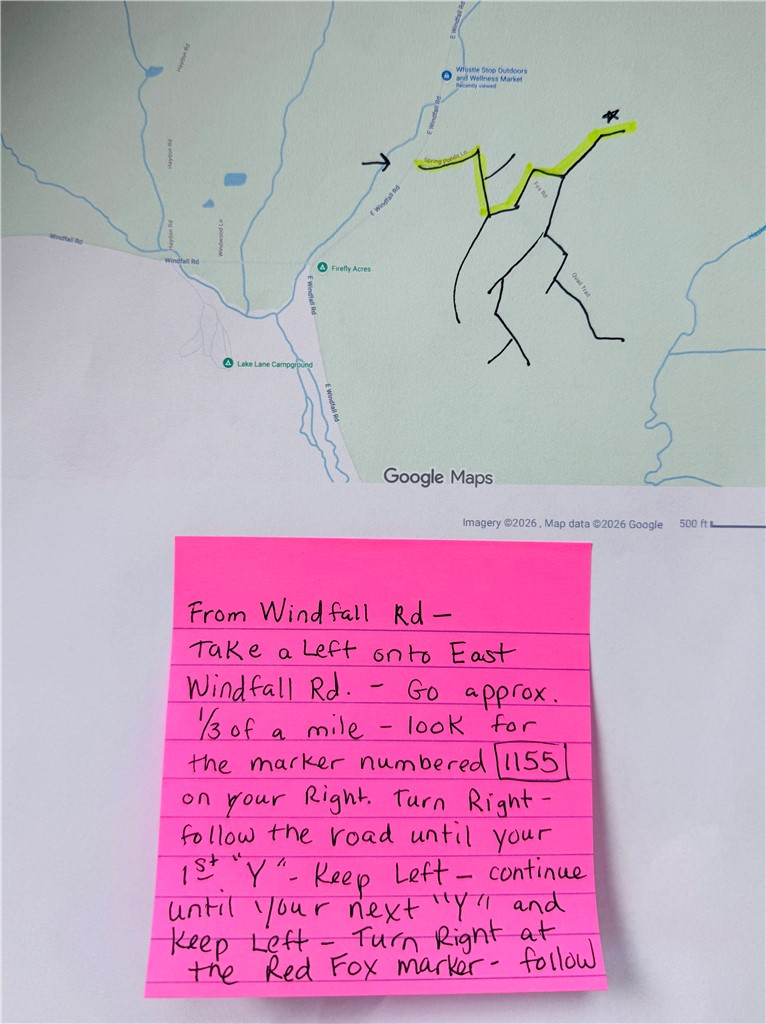 E Windfall Rd
Haydon Rd
Whistle Stop Outdoors
and Wellness Market
Recently viewed
E Windfall Rd
Haydon Rd
Spring Ponds Ln
Fox Rd
E Windfall Rd
Haydon Rd
Windwood Ln
Windfall Rd
Windfall Rd
Firefly Acres
E Windfall Rd
Quail Trail
Lake Lane Campground
E Windfall Rd
Google Maps
Imagery ©2026 , Map data ©2026 Google 500 ft
From Windfall Rd –
Take a Left onto East
Windfall Rd. – Go approx.
1/3 of a mile – look for
the marker numbered 1155
on your Right. Turn Right –
follow the road until your
1st "Y" – Keep Left – continue
until your next "Y" and
Keep Left – Turn Right at
the Red Fox marker – follow